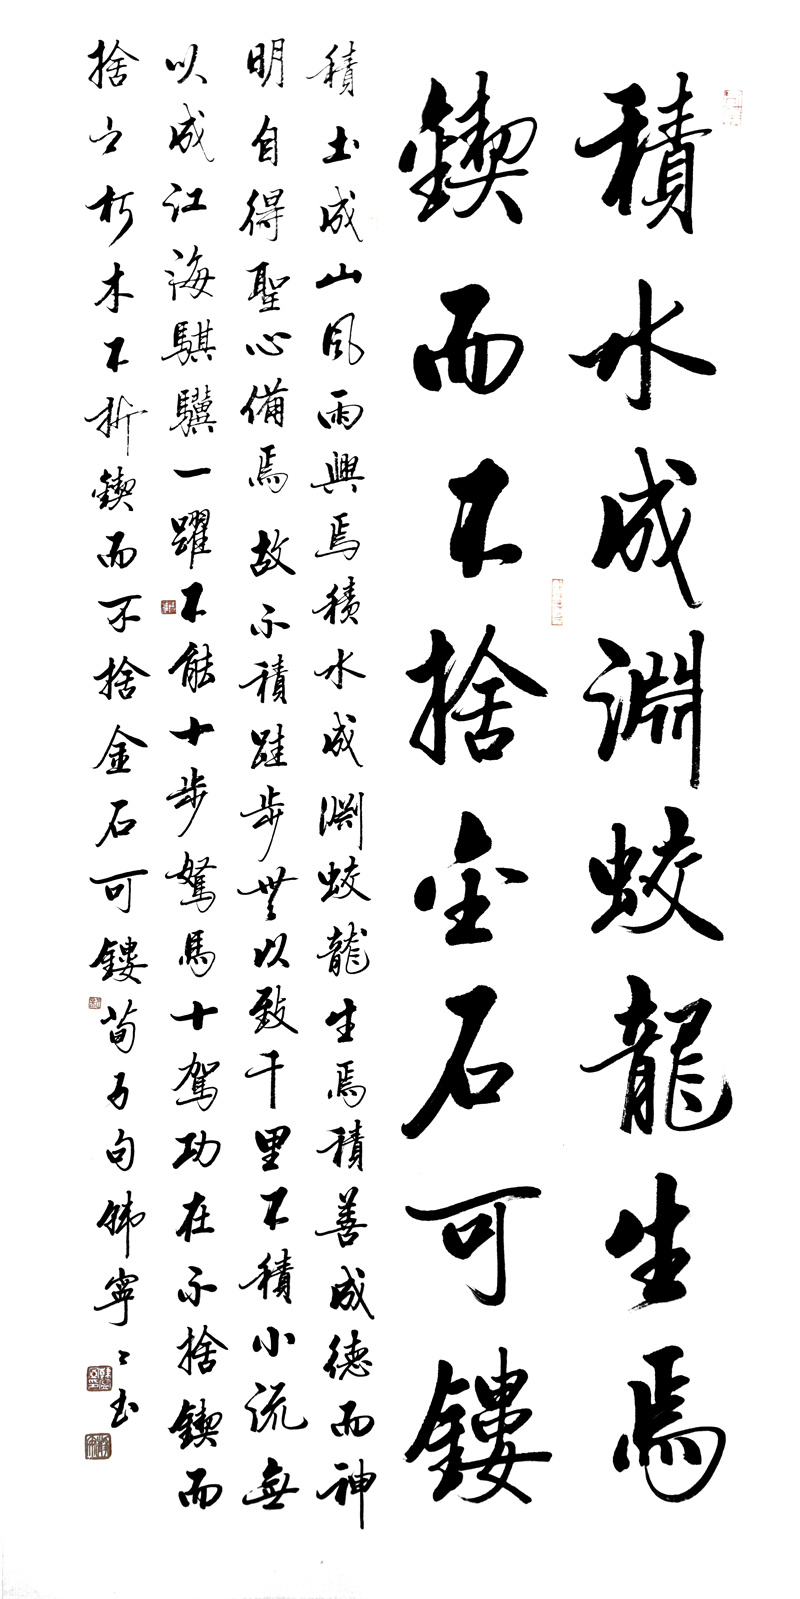 積水成淵蛟龍生焉
鍥而不捨金石可鏤
積土成山風雨興焉積水成淵蛟龍生焉積善成德而神
明自得聖心備焉故不積跬步無以致千里不積小流無
以成江海騏驥一躍不能十步駑馬十駕功在不捨鍥而
捨之朽木不折鍥而不捨金石可鏤荀子句韩寧々书